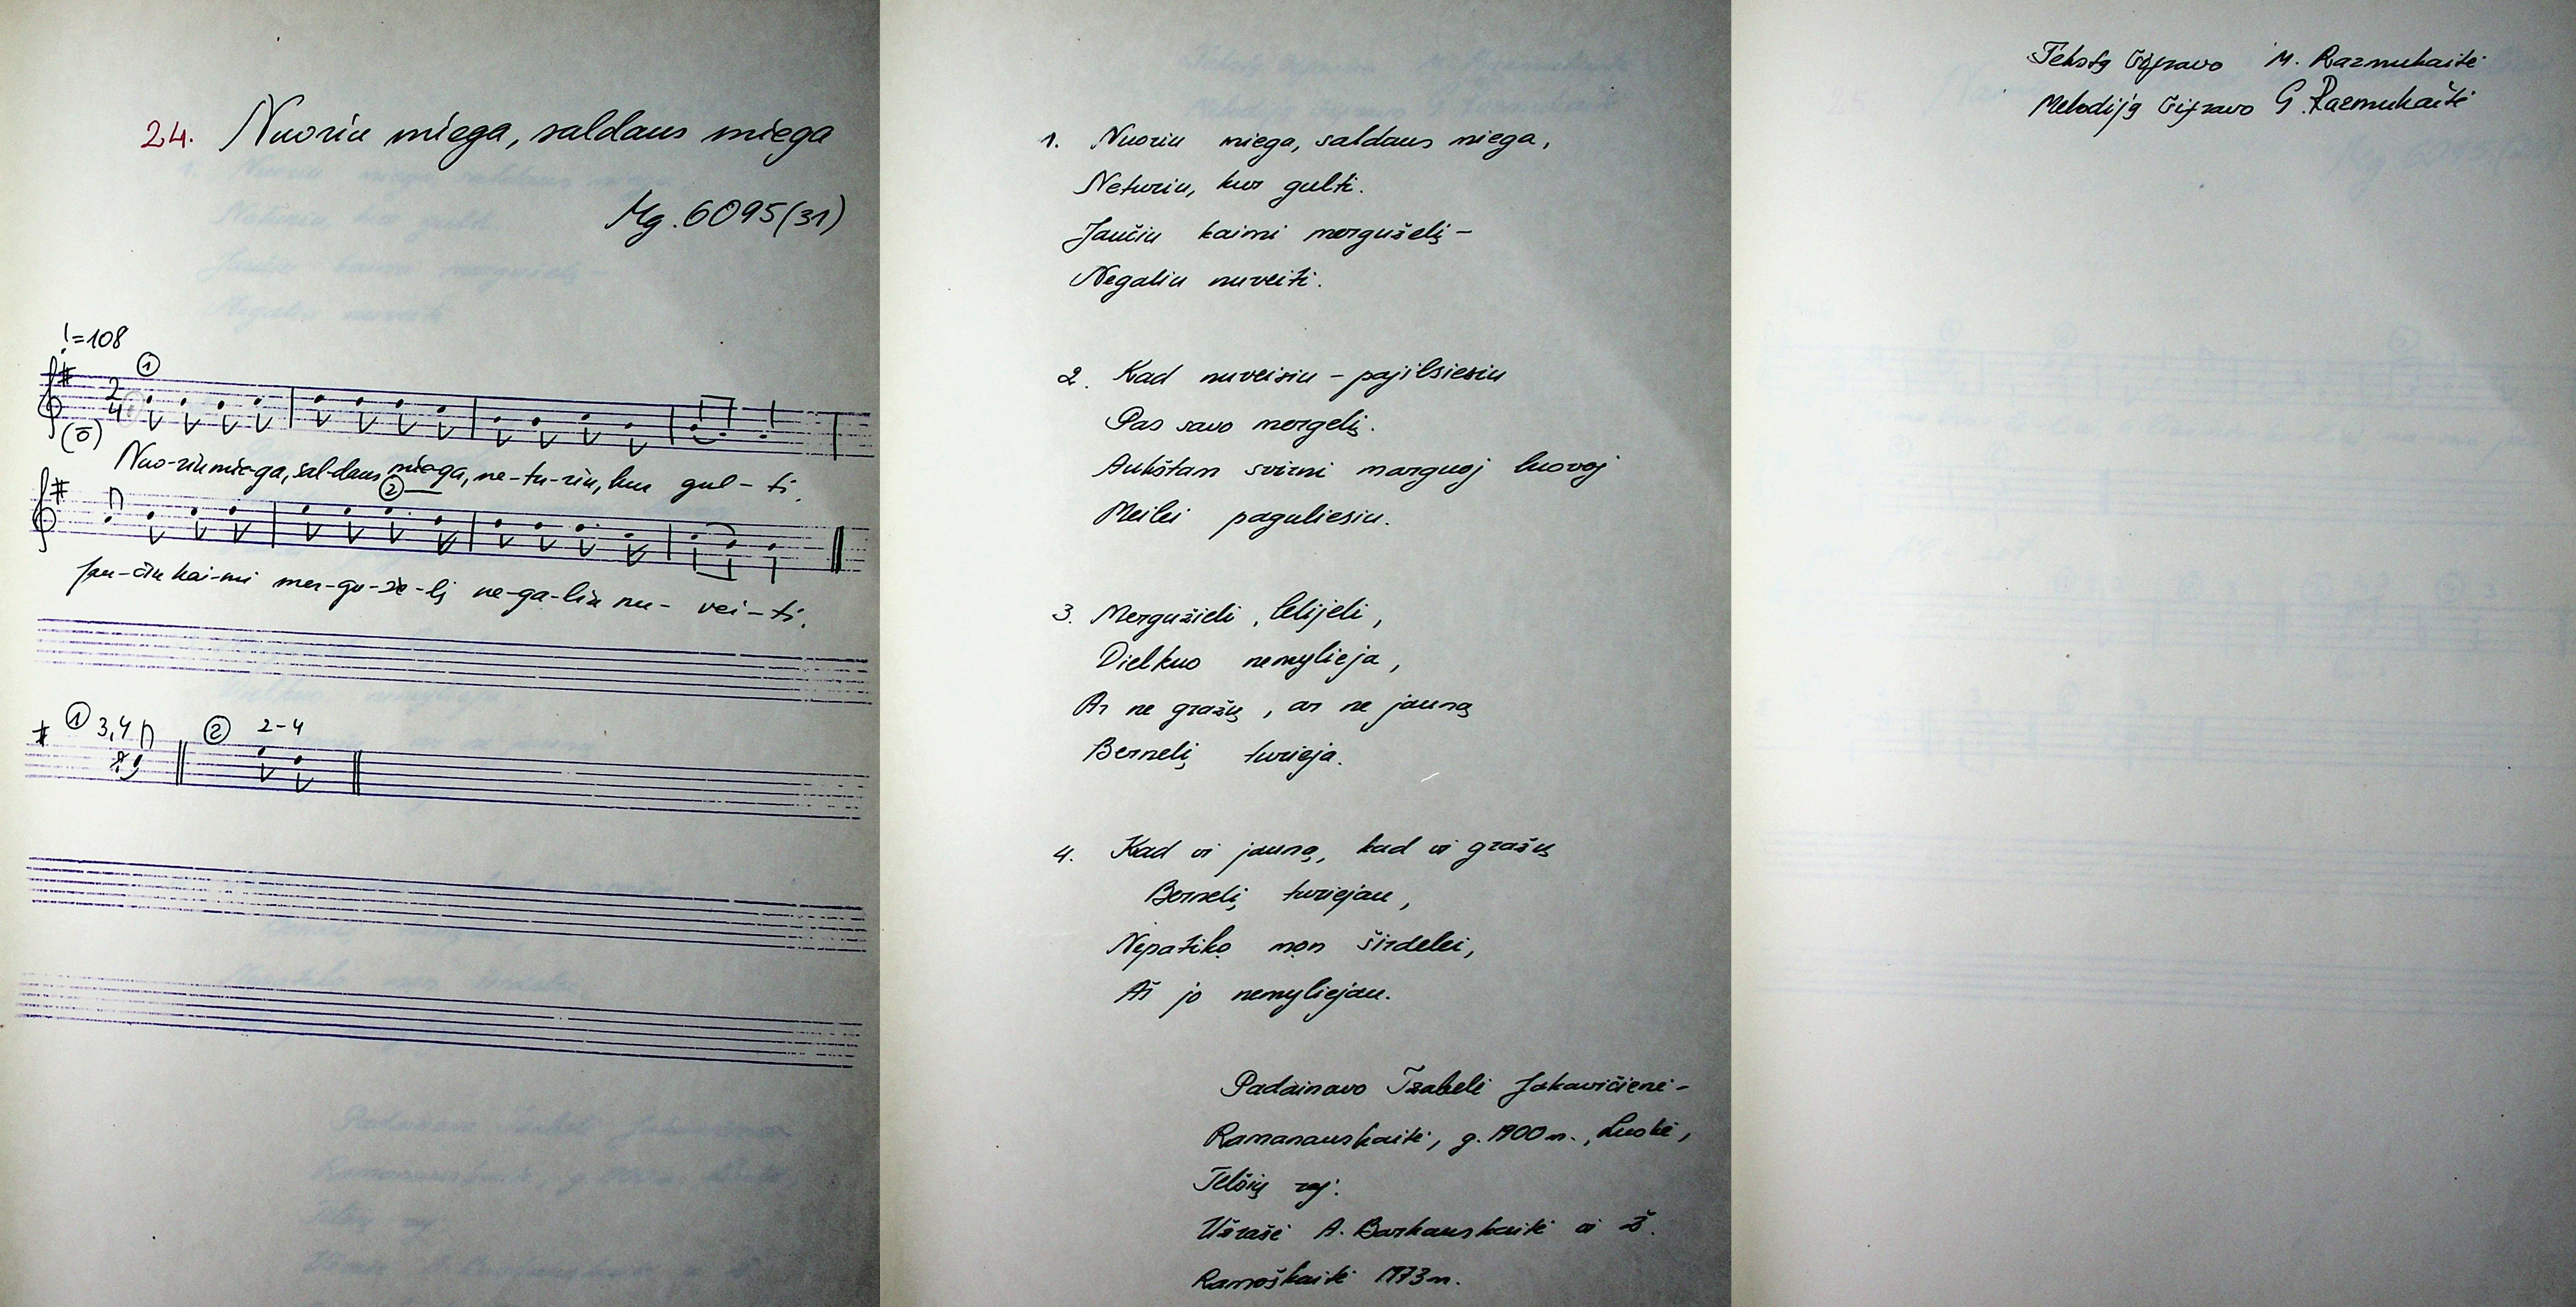 24. Nuoriu miega, saldaus miega
Mg. 6095(31)
♩=108
①
2
4
(ō)
Nuo-riu mie-ga, sal-daus mie-ga, ne-tu-riu, kur gul-ti.
②
Jau-čiu kai-mi mer-gu-že-lį ne-ga-liu nu-vei-ti.
① 3,4 ② 2-4
1. Nuoriu miega, saldaus miega,
Neturiu, kur gulti.
Jaučiu kaimi mergužėlį –
Negaliu nuveiti.
2. Kad nuveisiu – pajilsiesiu
Pas savo mergelį.
Aukštam svirni marguoj luovoj
Meilei paguliesiu.
3. Mergužieli, lelijeli,
Dielkuo nemylieja,
Ar ne gražų, ar ne jauną
Bernelį turieja.
4. Kad vi jauną, kad vi gražų
Bernelį turiejau,
Nepatiko mon širdelei,
Aš jo nemyliejau.
Padainavo Izabelė Jakavičienė-
Ramanauskaitė, g. 1900 m., Luokė,
Telšių raj.
Užrašė A. Barkauskaitė ir Ž.
Ramoškaitė 1973 m.
Tekstą šifravo M. Razmukaitė
Melodiją šifravo G. Razmukaitė